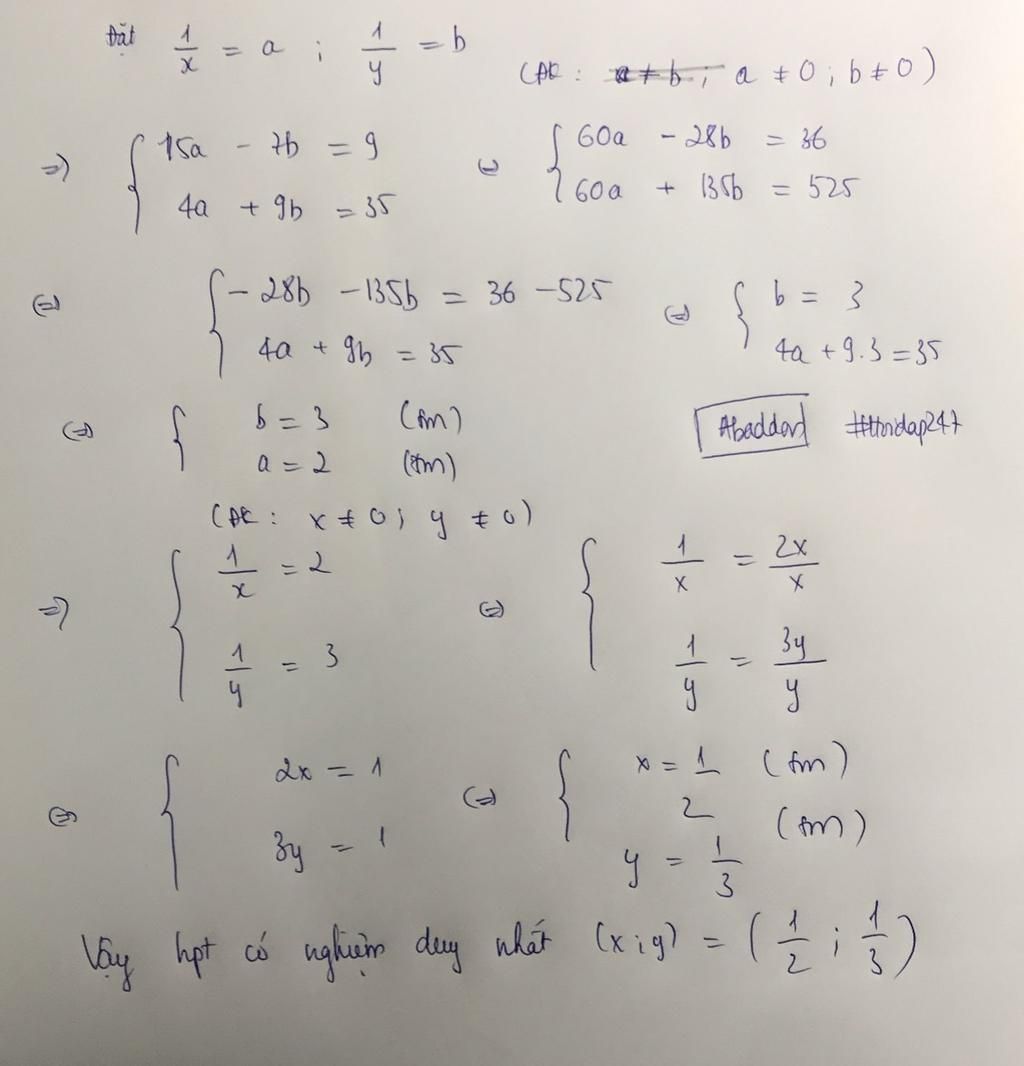 Đặt 1/x = a ; 1/y = b
(ĐK : a ≠ b ; a ≠ 0 ; b ≠ 0)
=> { 15a - 7b = 9 <=> { 60a - 28b = 36
4a + 9b = 35 60a + 135b = 525
<=> { -28b - 135b = 36 - 525 <=> { b = 3
4a + 9b = 35 4a + 9.3 = 35
<=> { b = 3 (tm)
a = 2 (tm)
Abaddon #hoidap247
(ĐK : x ≠ 0 ; y ≠ 0)
=> { 1/x = 2 <=> { 1/x = 2x/x
1/y = 3 1/y = 3y/y
<=> { 2x = 1 <=> { x = 1/2 (tm)
3y = 1 y = 1/3 (tm)
Vậy hpt có nghiệm duy nhất (x;y) = (1/2 ; 1/3)